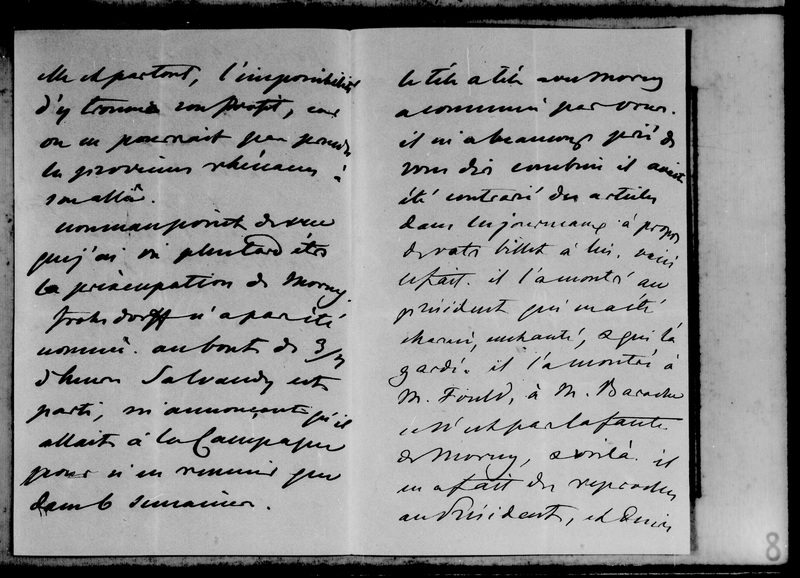 elle est partout, l'impossibilité
d'y trouver son profit, car
on ne pourrait pas prendre
les provinces rhénanes à
son allié.
point de vue
que j'ai vu plus tard être
la préoccupation de Morny.
frohsdorff n'a pas été
nommé. au bout de 3/4
d'heure Salvandy est
parti, m'annonçant qu'il
allait à la Campagne
pour n'en revenir que
dans 6 semaines.
le tête à tête avec Morny
a commencé par vous.
il m'a beaucoup prié de
vous dire combien il avait
été contrarié des articles
dans les journaux à propos
de votre billet à lui. voici
le fait. il l'a montré au
président qui en a été
charmé, enchanté, & qui l'a
gardé. il l'a montré à
M. Fould, à M. Baroche
ce n'est pas la faute
de Morny, & voilà. il
en a fait des reproches
au Président, et
8